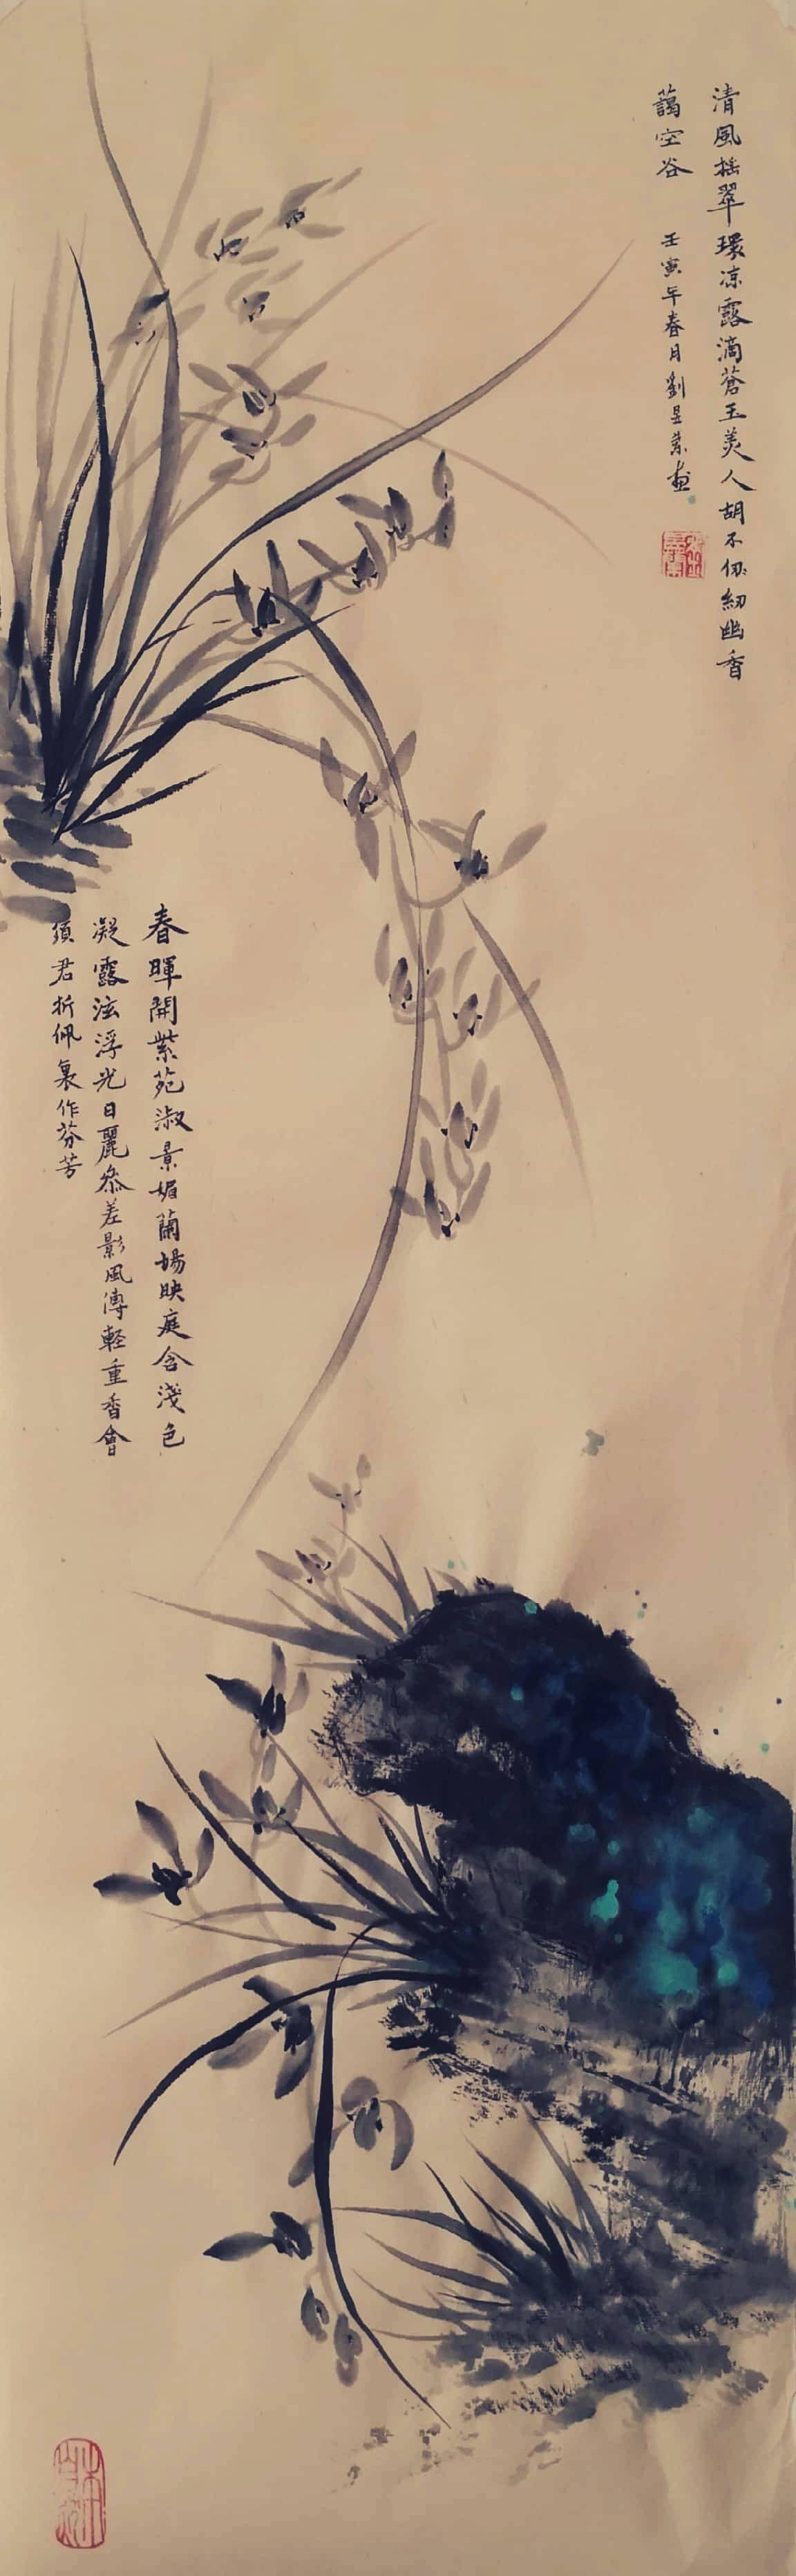 清風搖翠環涼露滴蒼玉美人胡不佩紉幽香
藹空谷
壬寅年春月劉昱棠畫
春暉開紫苑淑景媚蘭場映庭含淺色
凝露泫浮光日麗叅差影風傳輕重香會
須君折佩裏作芬芳